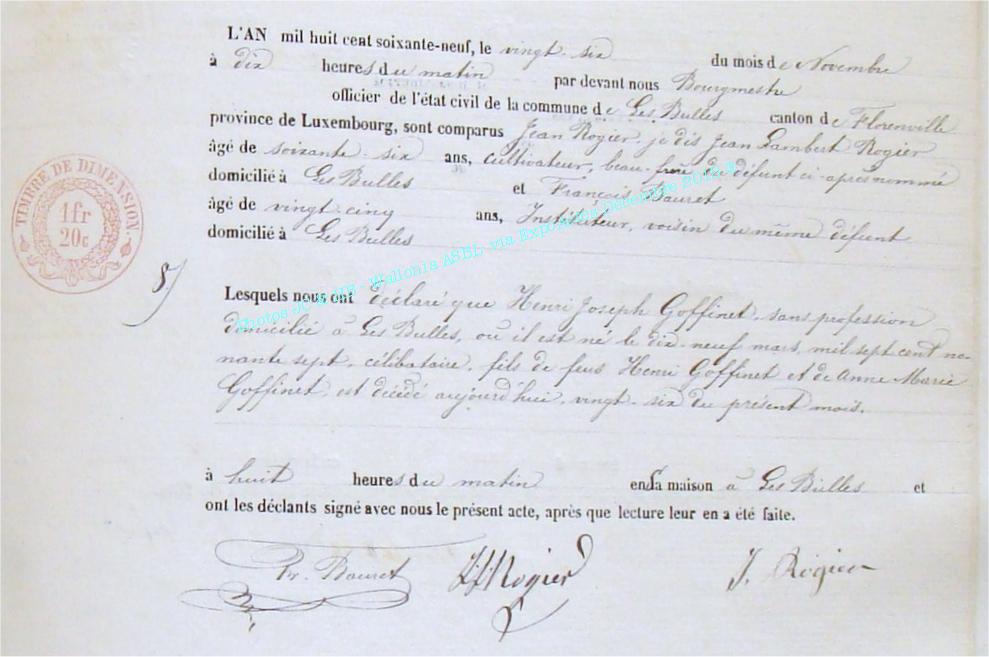 L'AN mil huit cent soixante-neuf, le vingt-six du mois de Novembre
à dix heures du matin par devant nous Bourgmestre
officier de l'état civil de la commune de Les Bulles canton de Florenville
province de Luxembourg, sont comparus Jean Rogier, je dis Jean Lambert Rogier
âgé de soixante-six ans, cultivateur, beau-frère du défunt ci-après nommé
domicilié à Les Bulles et François Bauret
âgé de vingt-cinq ans, Instituteur, voisin du même défunt
domicilié à Les Bulles
TIMBRE DE DIMENSION
1 fr
20c
8)
Lesquels nous ont déclaré que Henri Joseph Goffinet, sans profession
domicilié à Les Bulles, où il est né le dix-neuf mars, mil sept cent no-
nante sept, célibataire, fils de feus Henri Goffinet et de Anne Marie
Goffinet, est décédé aujourd'hui, vingt-six du présent mois.
à huit heures du matin en sa maison à Les Bulles et
ont les déclants signé avec nous le présent acte, après que lecture leur en a été faite.
Fr. Bauret Rogier J. Rogier
Wallonia ASBL, via Expo